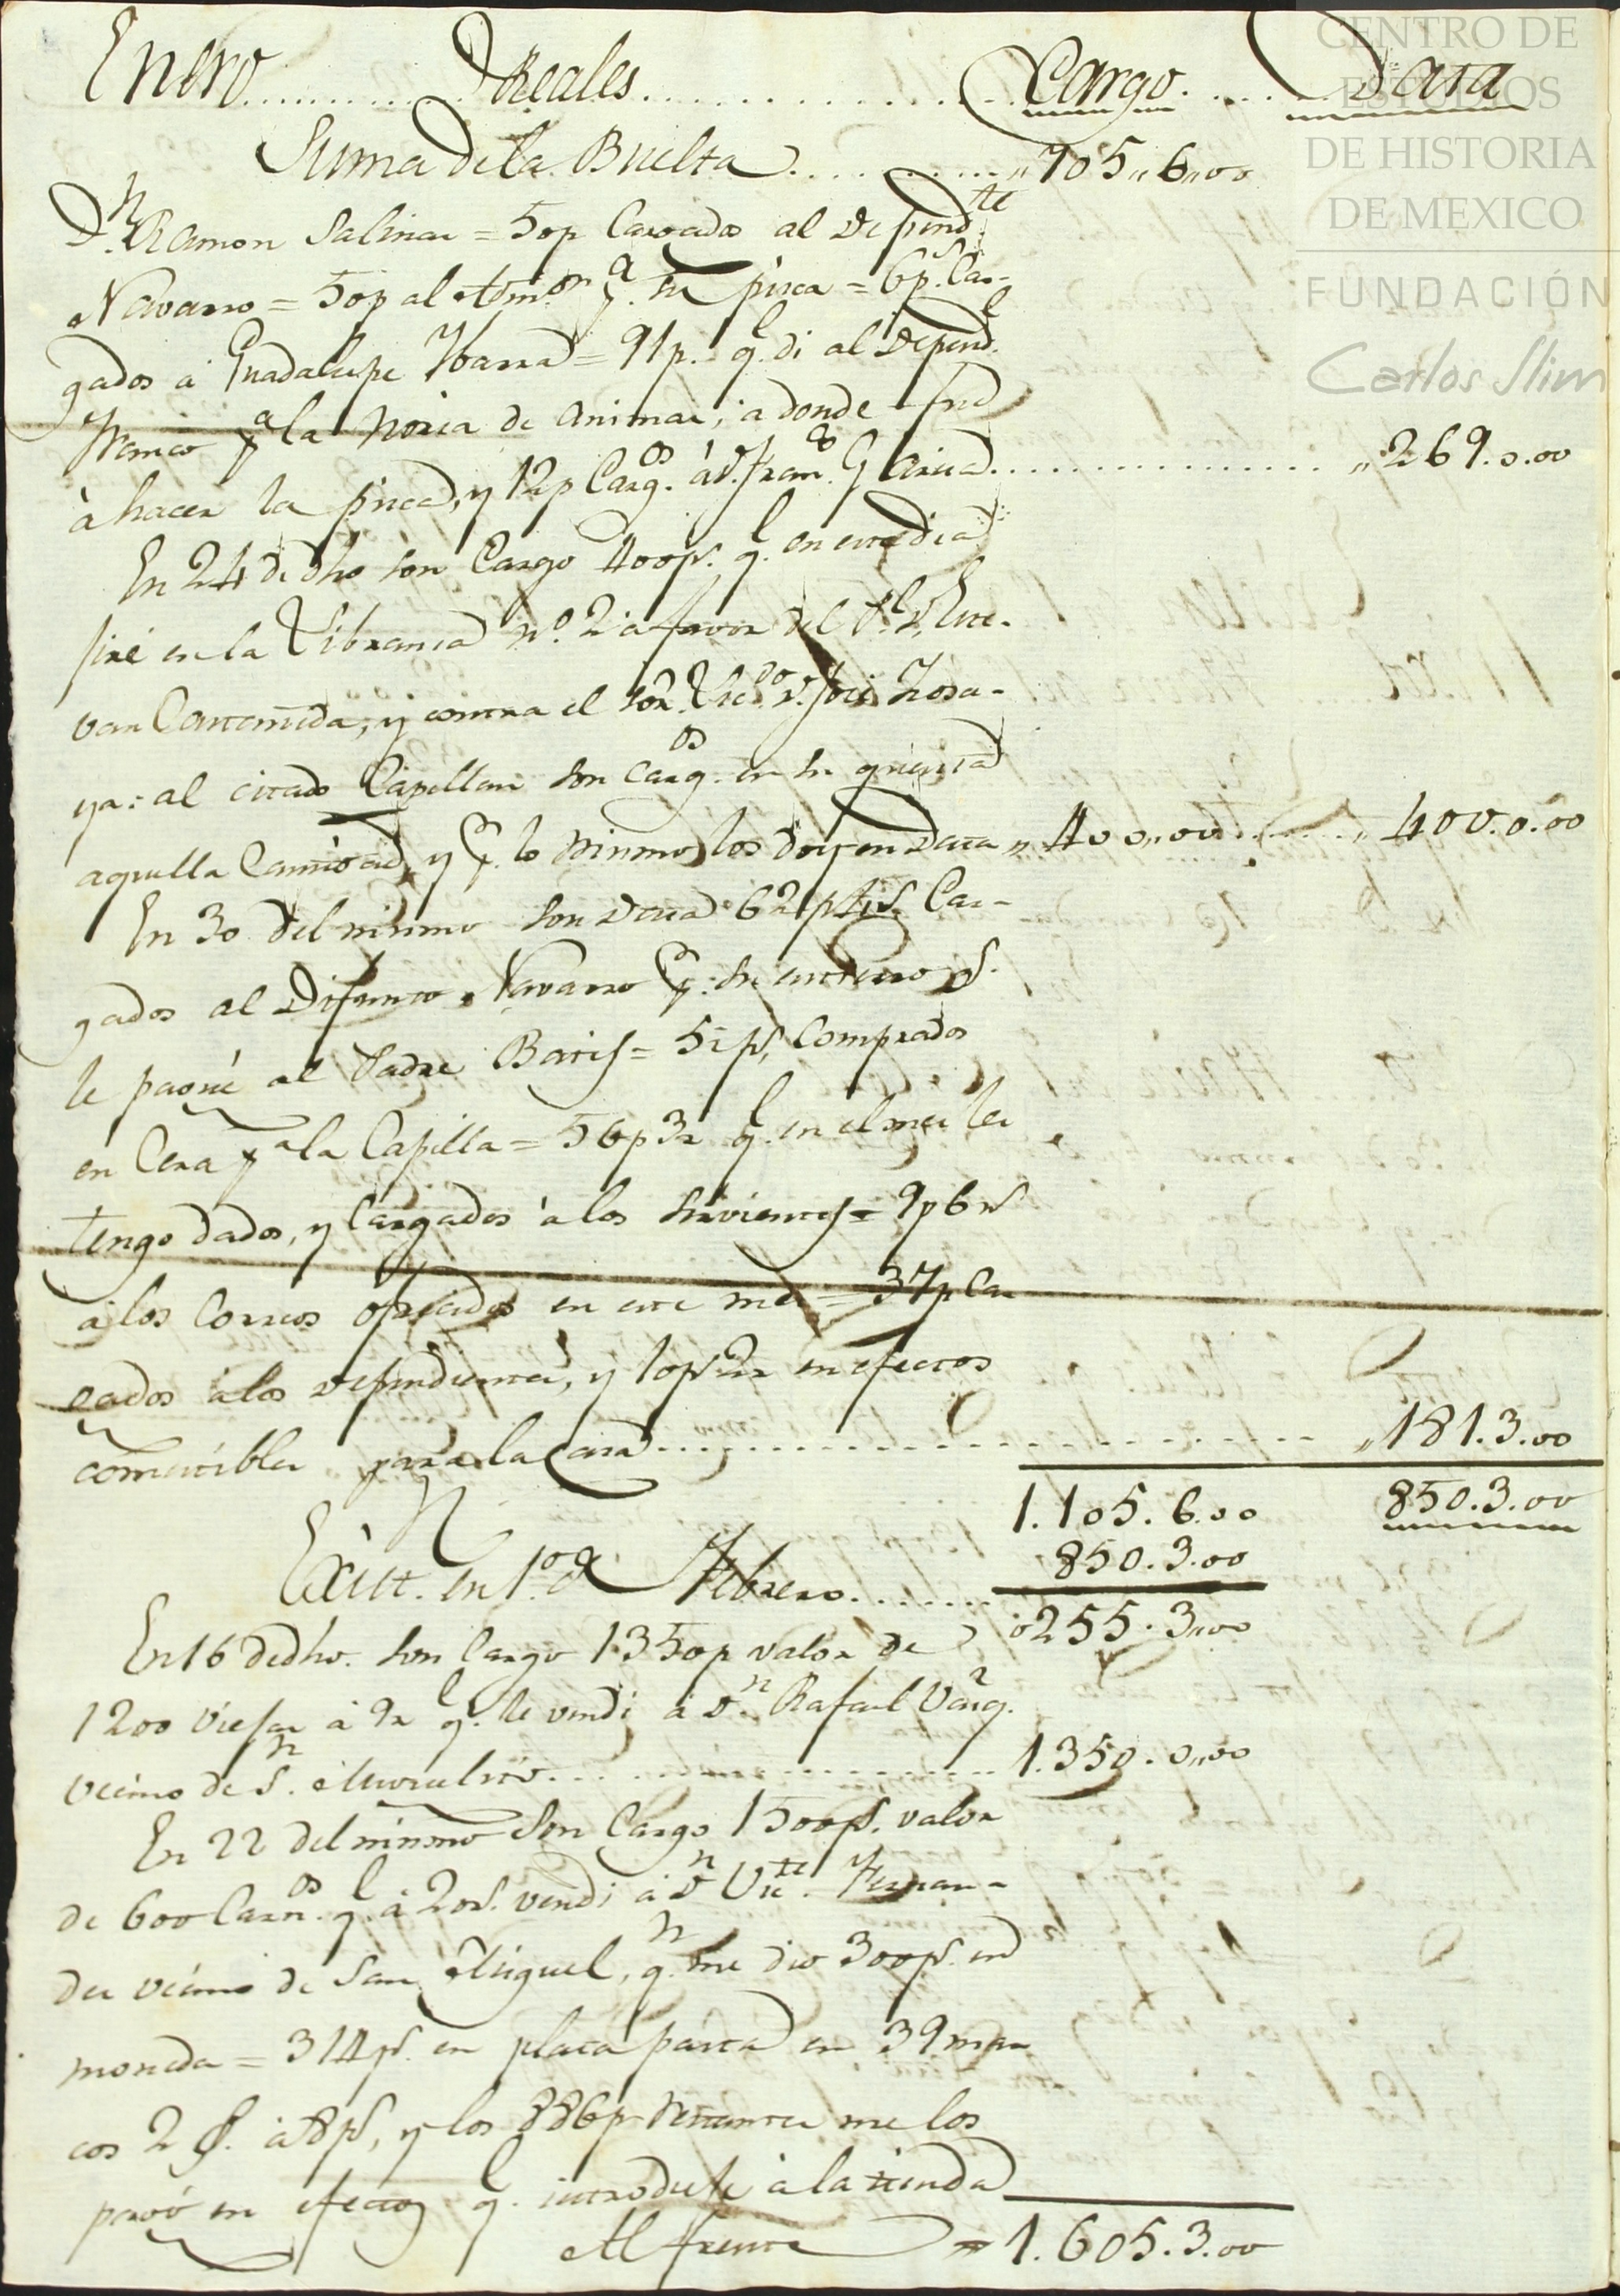 Enero............ Reales..................... Cargo........ Data
Suma de la Buelta............ „705„6„00
Dn. Ramon Salinas = 50p Cargados al Depend.te
Navarro = 50p al p.a su pisca = 6p.s Car-
gados a Guadalupe Ybarra = 91p. q.l di al Depend.
Franco p.a la Noria de Animas, a donde fué
à hacer la pisca, y 12p Carg.os à D. Fran.co Garcia.................. „269.0.00
En 24 de dho son Cargo 400p.s q.l en este dia
jiré en la Libranza n.o 2 a favor del P.e D. Este-
van Castañeda, y contra el Sor. Licdo. D. José Zoza-
ya: al citado Capellan son carg.os en su quenta
aquella Cantidad, y p.r lo mismo los doy en Data „400„00........ „400.0.00
En 30 del mismo son Data 62p4r.s Car-
gados al Difunto Navarro p.r su entierro q.
le pagué al Padre = 51p.s Comprados
en Cera p.a la Capilla = 56p3r q.l en el mes les
tengo dados, y Cargados à los Sirvientes = 9p6r.s
à los Correos ofrecidos en este mes = 37p Car
gados à los dependientes, y 10p.s2r en efectos
comestibles para la Casa........................ „181.3.00
1.105.6.00 850.3.00
850.3.00
Exist. en 1.o de Febrero.......
0255.3„00
En 16 de dho. son Cargo 1350p valor de
1200 Viejas à 9r q.l le vendi à D.n Rafael Vazq.
vecino de S.n ...................... 1.350.0„00
En 22 del mismo son Cargo 1500p.s valor
de 600 Carn.os q.l à 20r.s vendi à D.n Vic.te Fernan-
des vecino de San Miguel, q.n me dio 300p.s en
moneda = 314p.s en plata pasta en 39 mar
cos 2 à 8p.s, y los 886p restantes me los
pagó en efectos q.l introduje à la tienda
Al frente 1.605.3.00
CENTRO DE
ESTUDIOS
DE HISTORIA
DE MEXICO
FUNDACIÓN
Carlos Slim